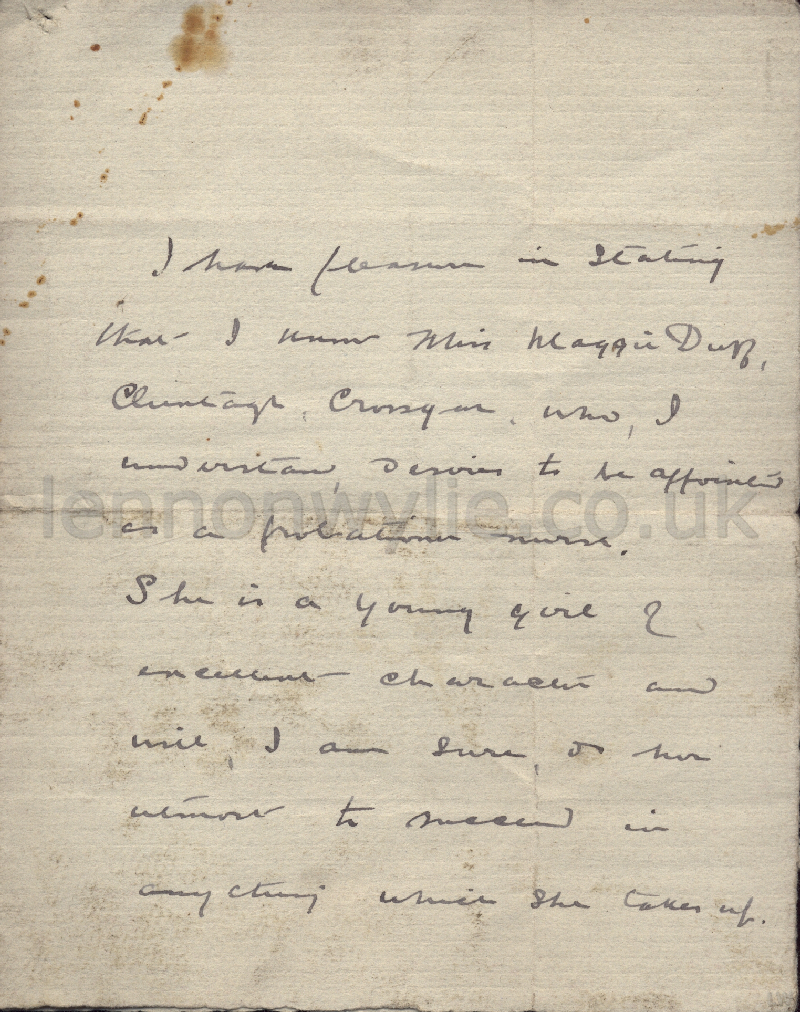 I have pleasure in stating
that I know Miss Maggie Duff,
Cluntagh, Crossgar, who, I
understand, desires to be appointed
lennonwylie.co.uk
as a probationer nurse.
She is a young girl of
excellent character and
will, I am sure, do her
utmost to succeed in
anything which she takes up.